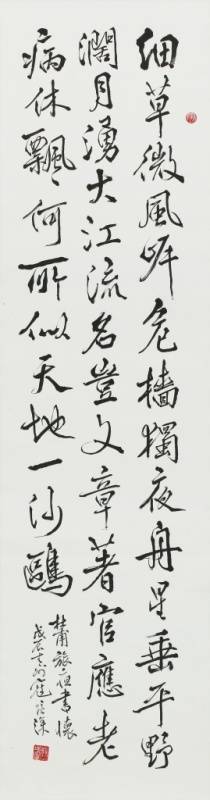 細草微風岸危檣獨夜舟星垂平野
濶月湧大江流名豈文章著官應老
病休飄〻何所似天地一沙鷗
杜甫旅夜書懷
戊辰